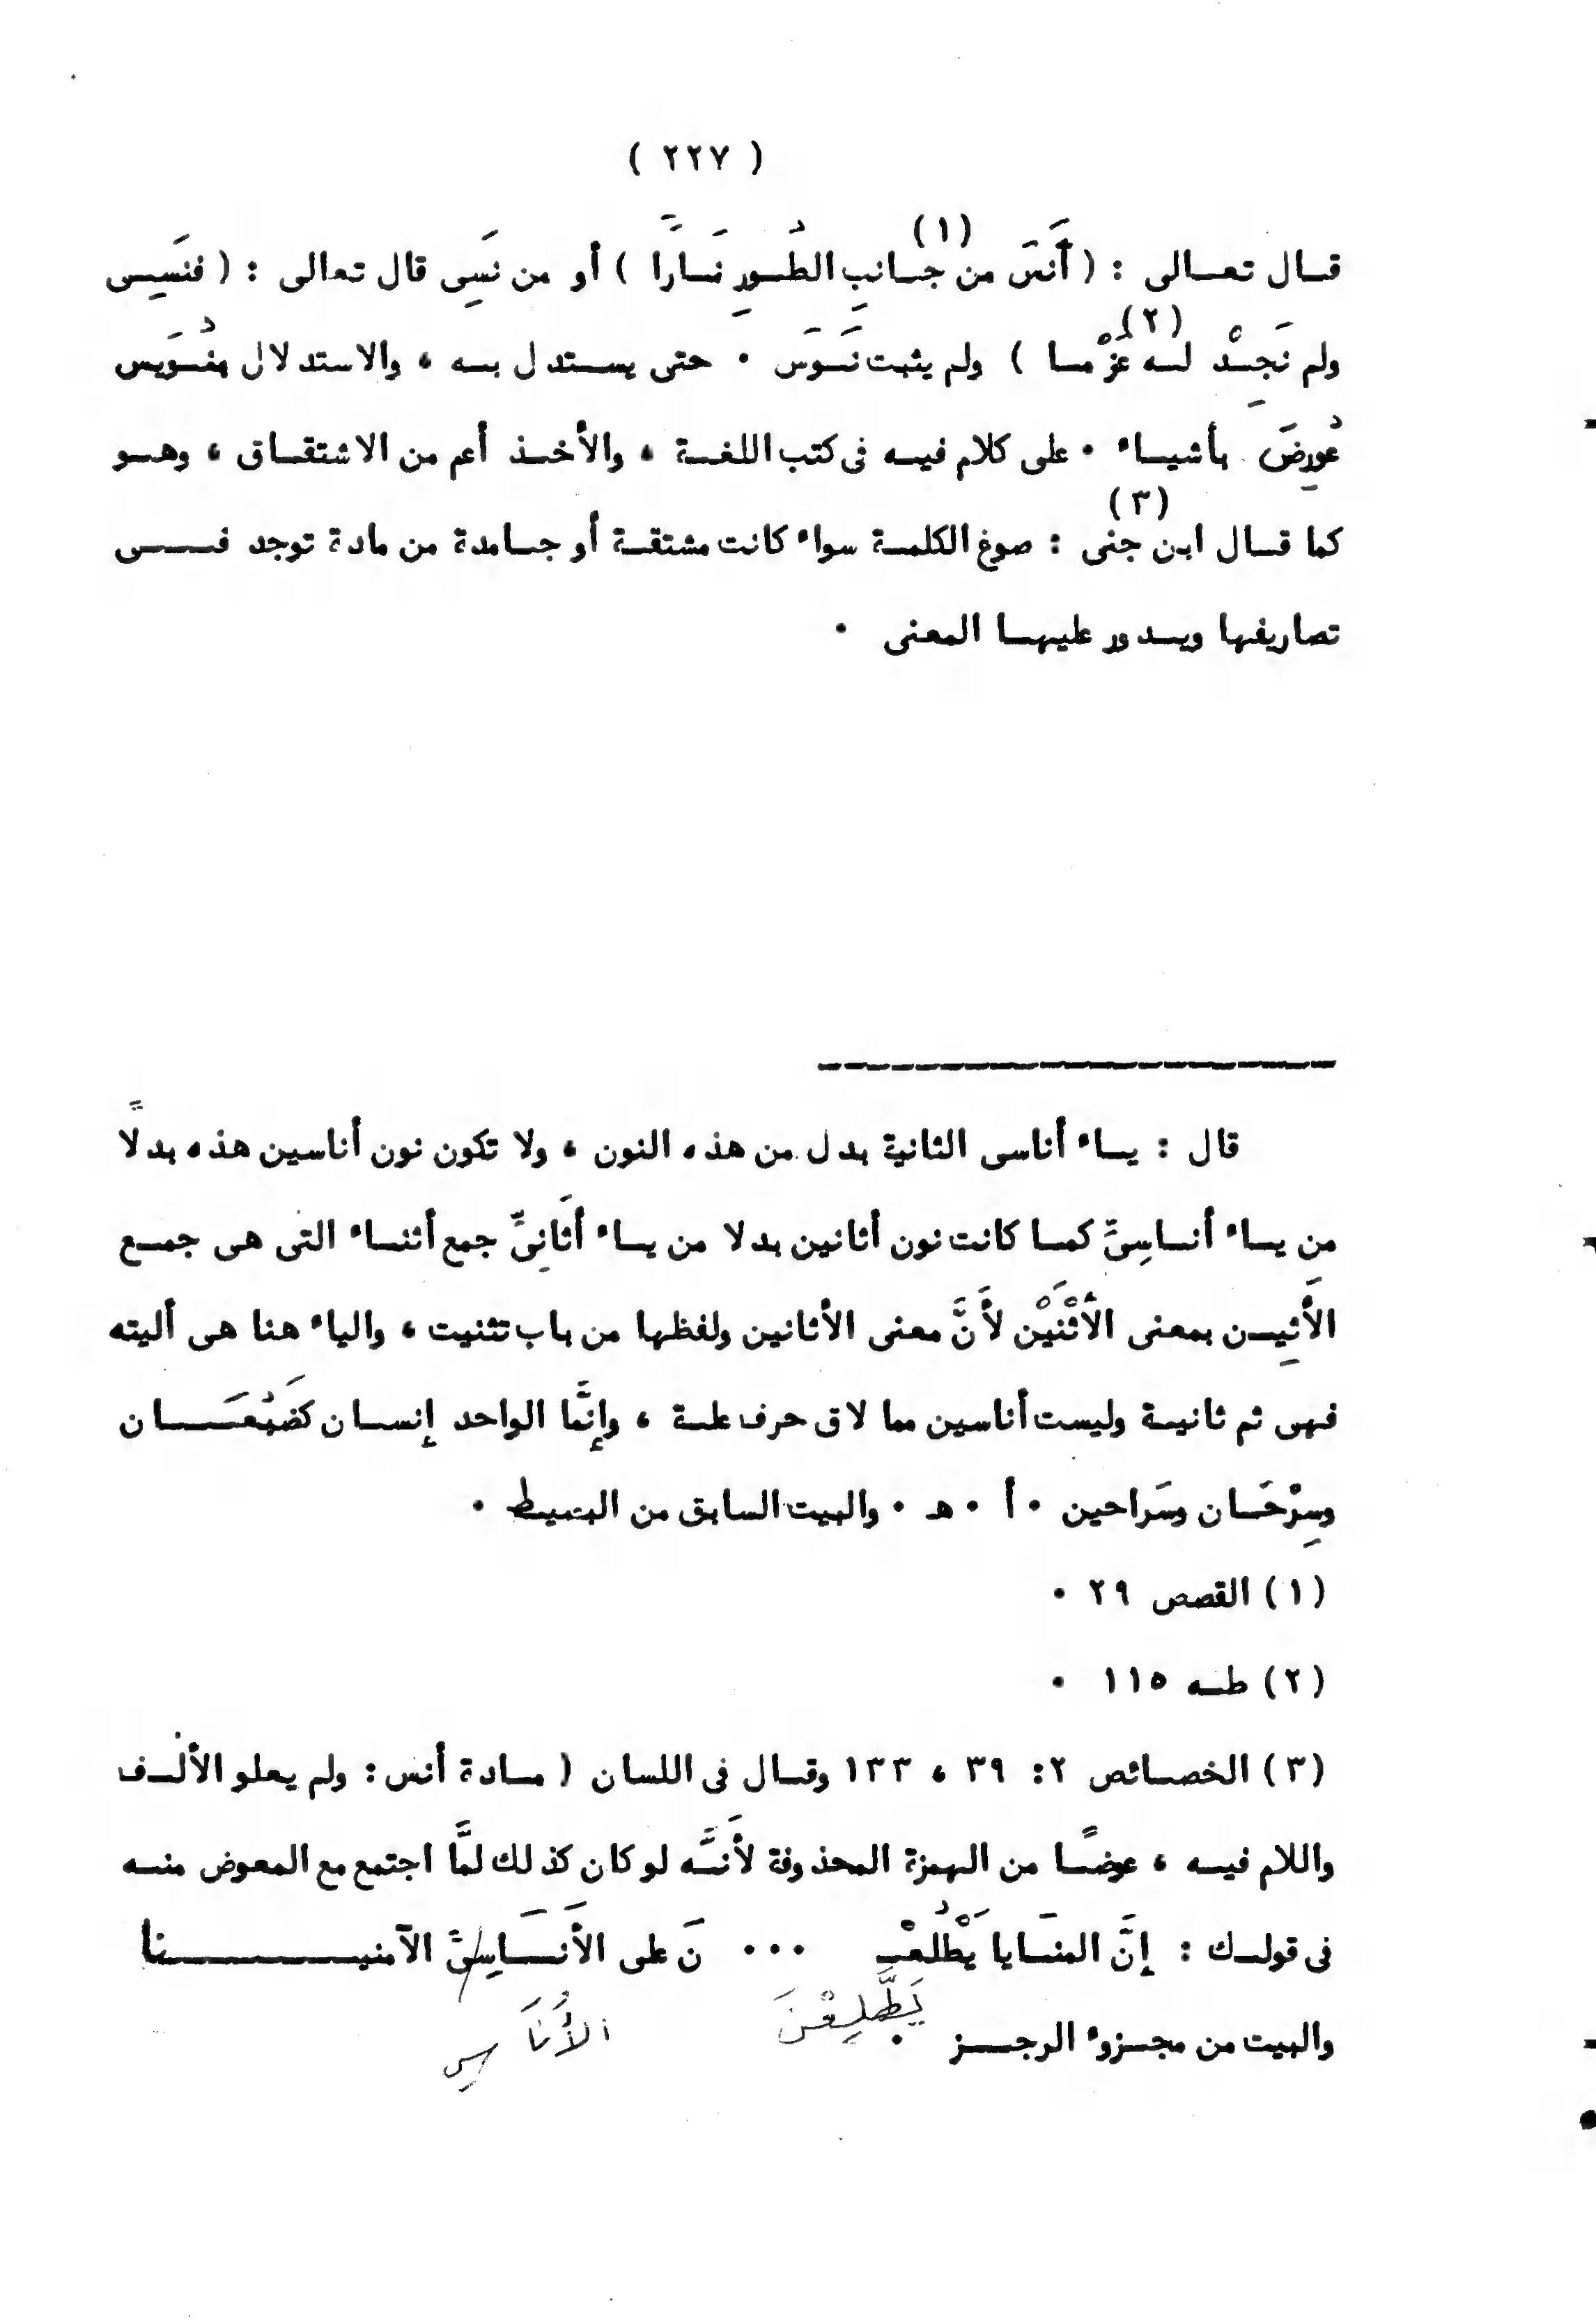 ( ٢٢٧ )
قال تعالى : ( أَنَسَ من جانبِ الطُورِ نَارًا ) (١) أو من نَسِى قال تعالى : ( فنَسِى
ولم نَجِدْ له عَزْمُا ) (٢) ولم يثبت نَوَسَ ٠ حتى يستدل به ، والاستدلال بنُوَيس
عُورِضَ بأشياء ٠ على كلام فيه فى كتب اللغة ، والأخذ أعم من الاشتقاق ، وهو
كما قال ابن جنى (٣) : صوغ الكلمة سواء كانت مشتقة أو جامدة من مادة توجد فى
تصاريفها ويدور عليها المعنى ٠
قال : ياء أناسى الثانية بدل من هذه النون ، ولا تكون نون أناسين هذه بدلًا
من ياء أناسِىَّ كما كانت نون أثانين بدلا من ياء أثَانِىِّ جمع أثناء التى هى جمع
الأَثِين بمعنى الأثْنَيْن لأَنَّ معنى الأثانين ولفظها من باب تثنيت ، والياء هنا هى أليته
فهى ثم ثانية وليست أناسين مما لاق حرف علة ، وإنَّما الواحد إنسان كضَبُعَان
وسِرْحَان وسَراحين ٠ أ ٠ هـ ٠ والبيت السابق من البسيط ٠
(١) القصص ٢٩ ٠
(٢) طه ١١٥ ٠
(٣) الخصائص ٢: ٣٩ ، ١٣٣ وقال فى اللسان ( مادة أنس : ولم يعلو الألف
واللام فيه ، عوضًا من الهمزة المحذوفة لأَنَّه لو كان كذلك لمَّا اجتمع مع المعوض منه
فى قولك : إنَّ المنَايا يَطْلُعْـ ٠٠٠ نَ على الأَنَاسِىَّ الآمنينا
والبيت من مجزوء الرجز ٠ يَطَّلِعْنَ الأُنَاسِ